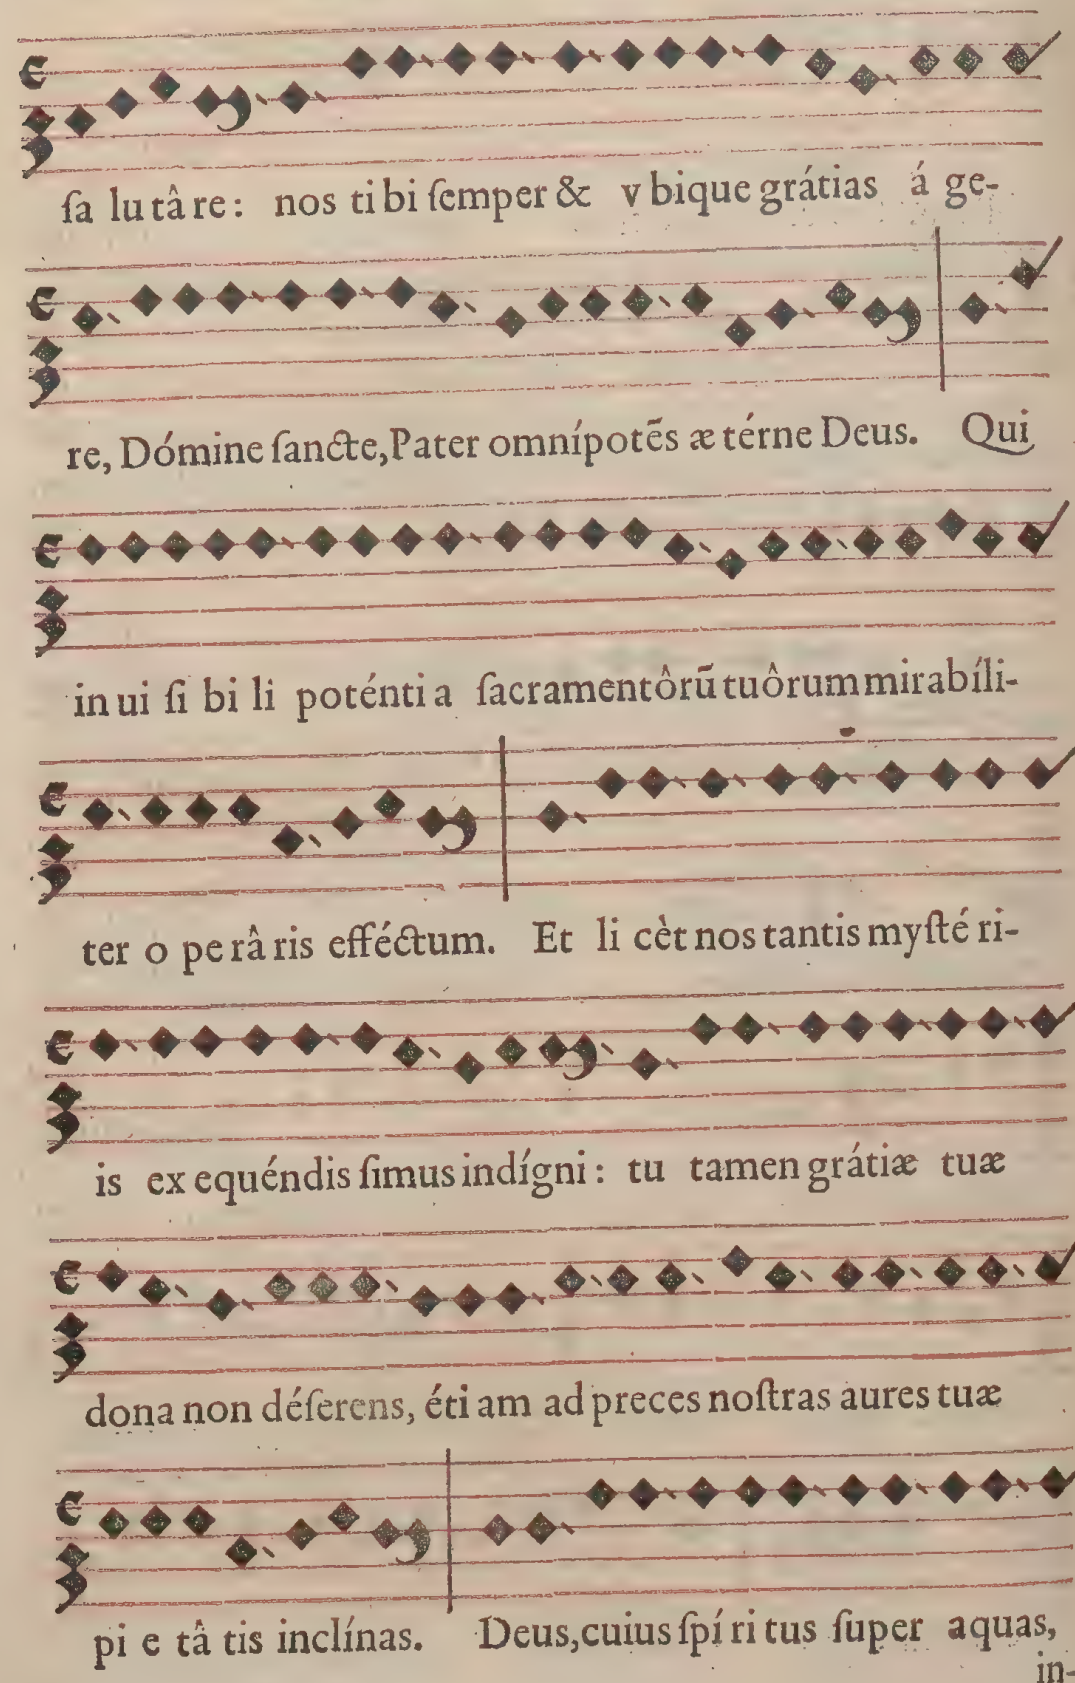 ſa lutâre: nos tibi ſemper & vbique grátias á ge-
re, Dómine ſancte, Pater omnípotēs æ térne Deus. Qui
in ui ſi bi li poténti a ſacramentôrū tuôrum mirabíli-
ter o pe râ ris efféctum. Et li cèt nos tantis myſté ri-
is ex equéndis ſimus indígni: tu tamen grátiæ tuæ
dona non déſerens, éti am ad preces noſtras aures tuæ
pi e tâ tis inclínas. Deus, cuius ſpí ri tus ſuper aquas,
in-